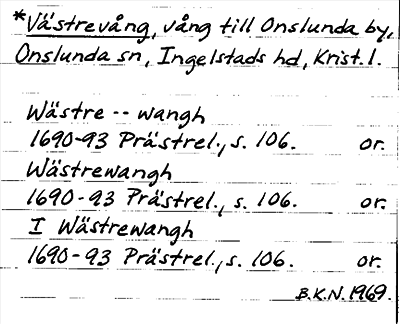 *Västrevång, vång till Onslunda by,
Onslunda sn, Ingelstads hd, Krist. l.
Wästre -- wangh
1690-93 Prästrel., s. 106. or.
Wästrewangh
1690-93 Prästrel., s. 106. or.
I Wästrewangh
1690-93 Prästrel., s. 106. or.
B.K.N. 1969.